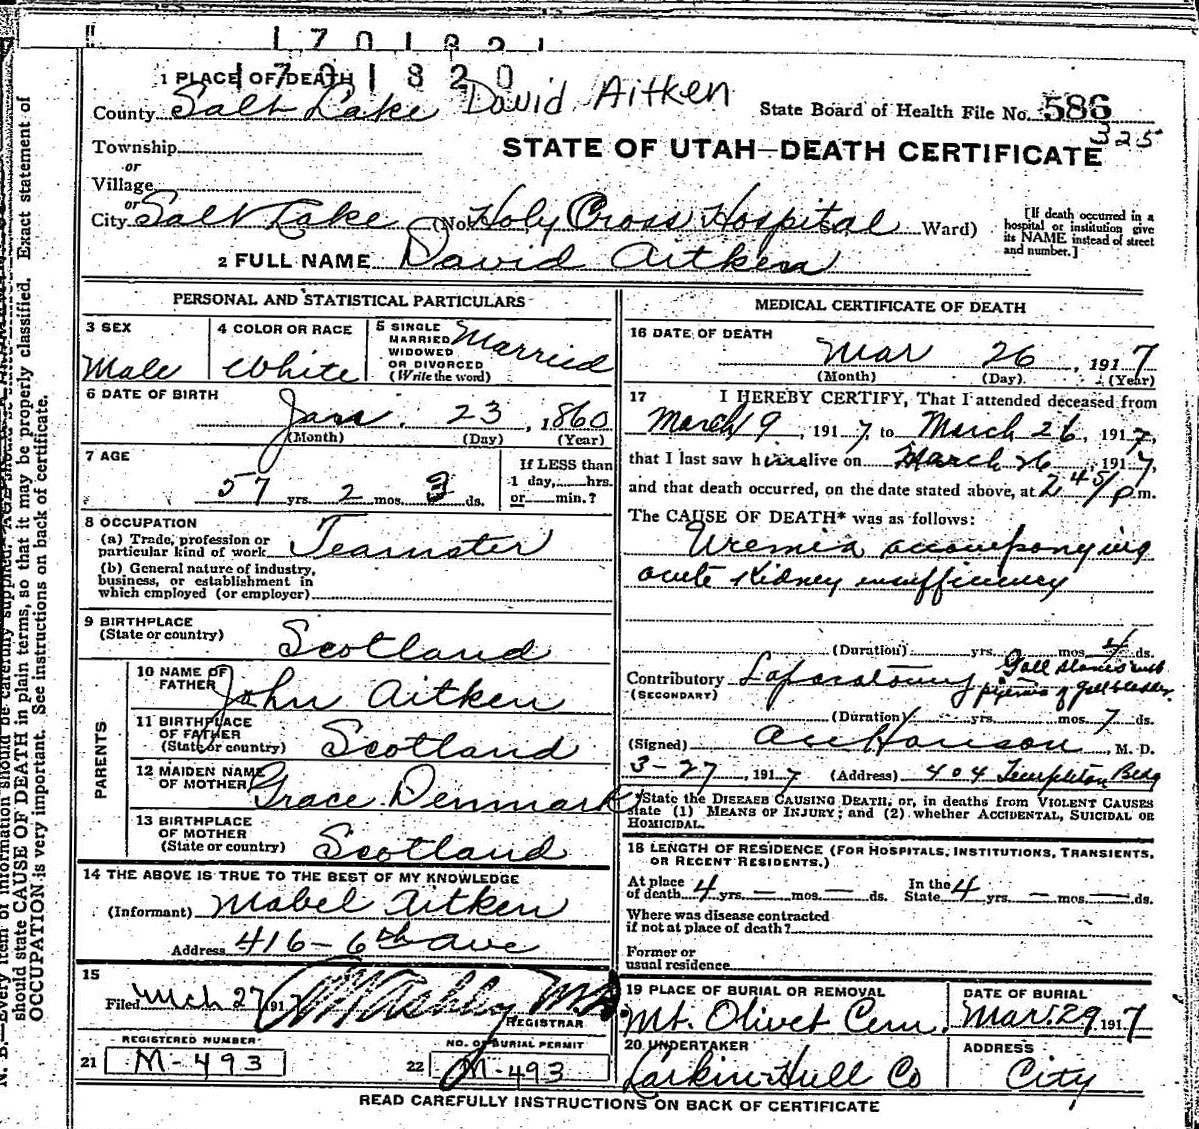 1 7 0 1 8 2 1
1 7 0 1 8 2 0
1 PLACE OF DEATH
David Aitken
County Salt Lake
State Board of Health File No. 586
325
Township
STATE OF UTAH—DEATH CERTIFICATE
or
Village
or
City Salt Lake (No. Holy Cross Hospital Ward)
[If death occurred in a
hospital or institution give
its NAME instead of street
and number.]
2 FULL NAME David Aitken
PERSONAL AND STATISTICAL PARTICULARS
3 SEX
Male
4 COLOR OR RACE
White
5 SINGLE
MARRIED
WIDOWED
OR DIVORCED
(Write the word)
Married
6 DATE OF BIRTH
Jan. 23, 1860
(Month) (Day) (Year)
7 AGE
57 yrs. 2 mos. 3 ds.
If LESS than
1 day, hrs.
or min.?
8 OCCUPATION
(a) Trade, profession or
particular kind of work Teamster
(b) General nature of industry,
business, or establishment in
which employed (or employer)
9 BIRTHPLACE
(State or country) Scotland
PARENTS
10 NAME OF
FATHER John Aitken
11 BIRTHPLACE
OF FATHER
(State or country) Scotland
12 MAIDEN NAME
OF MOTHER Grace Denmark
13 BIRTHPLACE
OF MOTHER
(State or country) Scotland
14 THE ABOVE IS TRUE TO THE BEST OF MY KNOWLEDGE
(Informant) Mabel Aitken
Address 416-6th Ave
15
Filed Mch 27 1917 Ashby M.D.
REGISTRAR
REGISTERED NUMBER
21 M-493
NO. OF BURIAL PERMIT
22 M-493
MEDICAL CERTIFICATE OF DEATH
16 DATE OF DEATH
Mar 26, 1917
(Month) (Day) (Year)
17 I HEREBY CERTIFY, That I attended deceased from
March 19, 1917, to March 26, 1917,
that I last saw him alive on March 26, 1917,
and that death occurred, on the date stated above, at 2 45/ p.m.
The CAUSE OF DEATH* was as follows:
Uremia accompanying
acute Kidney insufficiency
(Duration) yrs. mos. 4 ds.
Contributory Laparatomy Gall stones with
(SECONDARY) of gall bladder
(Duration) yrs. mos. 7 ds.
(Signed) Hanson, M. D.
3-27, 1917 (Address) 404 Templeton Bldg
*State the DISEASE CAUSING DEATH, or, in deaths from VIOLENT CAUSES
state (1) MEANS OF INJURY; and (2) whether ACCIDENTAL, SUICIDAL OR
HOMICIDAL.
18 LENGTH OF RESIDENCE (FOR HOSPITALS, INSTITUTIONS, TRANSIENTS,
OR RECENT RESIDENTS.)
At place
of death 4 yrs. — mos. — ds.
In the
State 4 yrs. — mos. — ds.
Where was disease contracted
if not at place of death?
Former or
usual residence
19 PLACE OF BURIAL OR REMOVAL
Mt. Olivet Cem.
DATE OF BURIAL
Mar. 29 1917
20 UNDERTAKER
Larkin-Hull Co
ADDRESS
City
READ CAREFULLY INSTRUCTIONS ON BACK OF CERTIFICATE
N. B.—Every item of information should be carefully supplied.
should state CAUSE OF DEATH in plain terms, so that it may be properly classified. Exact statement of
OCCUPATION is very important. See instructions on back of certificate.